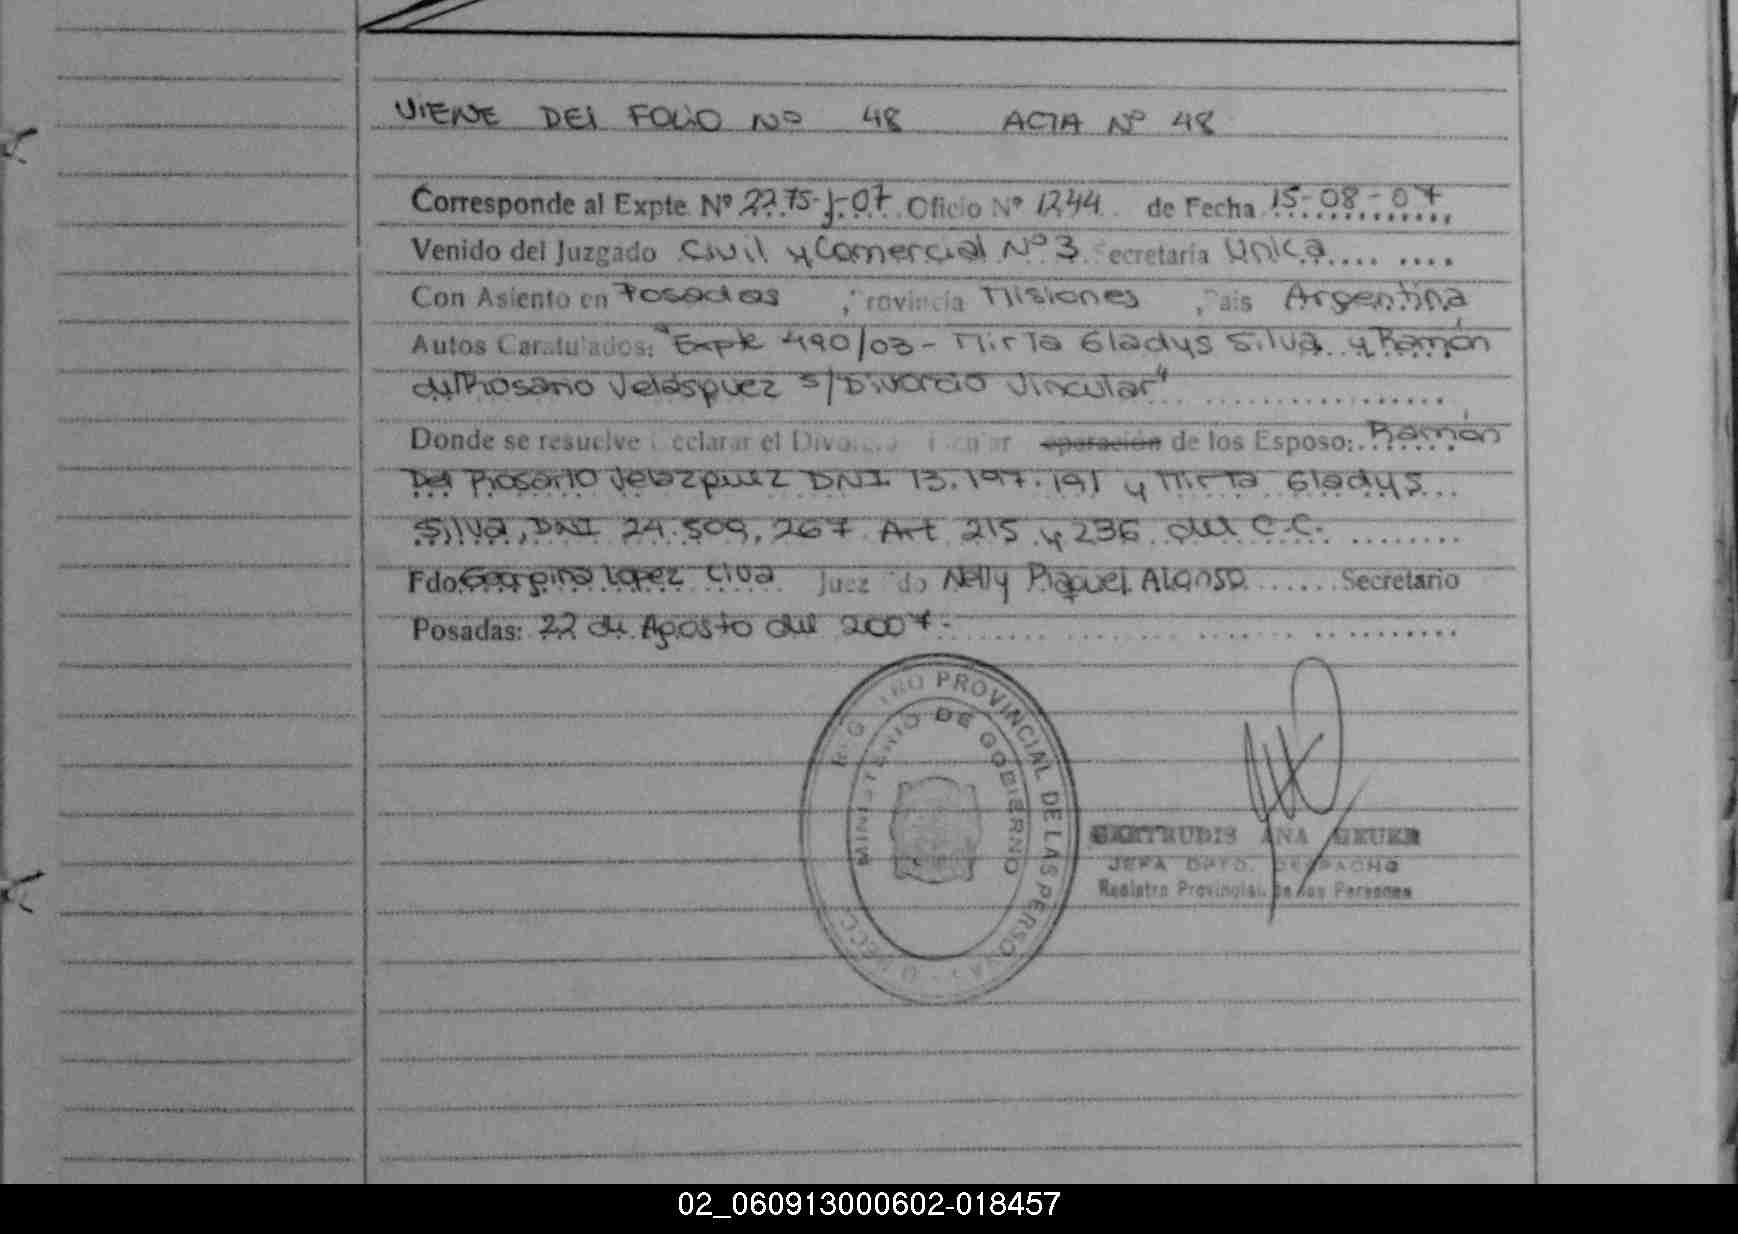 VIENE DEL FOLIO Nº 48 ACTA Nº 48
Corresponde al Expte. Nº 2275-J-07 Oficio Nº 1244 de Fecha 15-08-07
Venido del Juzgado Civil y Comercial Nº 3 Secretaria Unica
Con Asiento en Posadas, Provincia Misiones, Pais Argentina
Autos Caratulados: "Expte 490/03 - Mirta Gladys Silva y Ramón
del Rosario Velásquez s/Divorcio Vincular"
Donde se resuelve Declarar el Divorcio Vincular de los Esposo: Ramón
Del Rosario Velazquez DNI 13.197.191 y Mirta Gladys
Silva, DNI 24.509.267 Art 215 y 236 del C.C.
Fdo. Lopez Juez Fdo Nelly Raquel Alonso Secretario
Posadas: 22 de Agosto del 2007-
REGISTRO PROVINCIAL DE LAS PERSONAS
MINISTERIO DE GOBIERNO
GERTRUDIS ANA
JEFA DPTO. DESPACHO
Registro Provincial de las Personas
02_060913000602-018457